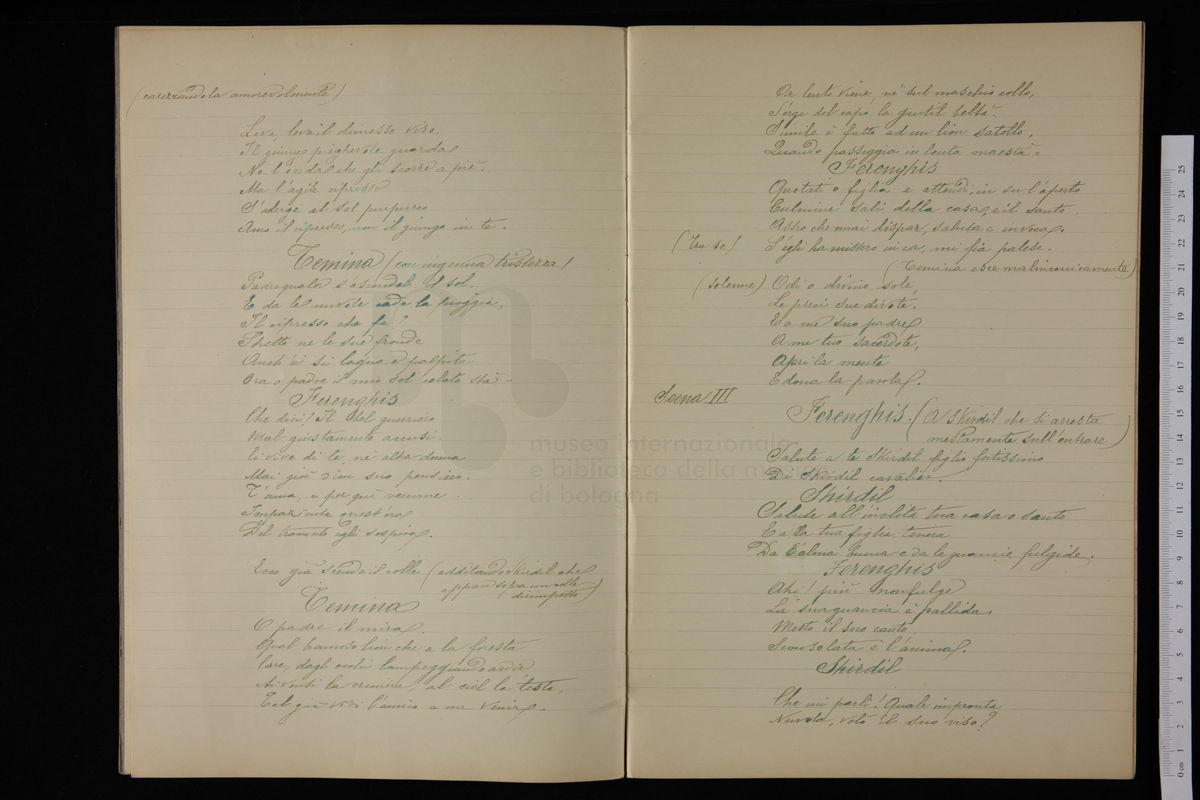 (carezzandola amorevolmente)
Leva, leva il dimesso viso.
Il giunco pieghevole guarda
Ne l'onda che gli scorre a piè.
Ma l'agile cipresso
S'aderge al sol purpureo
Amo il cipresso, non il giunco in te.
Temina (con ingenua tristezza)
Padre guata s'asconde il sol.
E da le nuvole cade la pioggia,
Il cipresso che fa?
Stretto ne le sue fronde
Anch'ei si lagna e palpita
Ora o padre il mio sol celato sta
Ferenghis
Che dici! Il bel guerriero
Mal giustamente accusi.
Ei vive di te, nè altra donna
Mai già d'un suo pensiero.
T'ama, e per qui venirne
Impaziente quest'ora
Del tramonto egli sospira.
Ecco già scende il colle (additando Skirdil che
appare sopra un colle
dirimpetto)
Temina
O padre il mira.
Qual bramoso lion che a la foresta
Care, dagli occhi lampeggiando ardir
Ai venti la criniera, al ciel la testa,
Tal già vidi l'amico a me venir.
Or lento viene, nè sul maschio collo,
S'erge del capo la gentil beltà.
Simile è fatto ad un lion satollo,
Quando passeggia in lenta maestà.
Ferenghis
Quetati o figlia e attendi; in su l'aperto
Culmine sali della casa, e il santo
Astro che omai dispar, saluta e invoca.
(tra se) S'egli ha mistero in cor, mi fia palese.
(Temina esce malinconicamente)
(solenne) Odi o divino sole,
Le preci sue divote.
E a me suo padre
A me tuo sacerdote,
Apri la mente
E dona la parola.
Scena III
Ferenghis. (A Skirdil che si arresta
mestamente sull'entrare)
Salute a te Skirdil figlio fortissimo
Di Skirdil cavalier.
Skirdil
Salute all'inclita tua casa o santo
E a la tua figlia tenera
Da l'alma buona e da le guancie fulgide.
Ferenghis
Ahi! più non fulge
La sua guancia è pallida,
Mesto il suo canto,
Sconsolata è l'anima.
Skirdil
Che mi parli! Quale impronta
Nuvola, velò il suo viso?
museo internazionale
e biblioteca della musica
di bologna